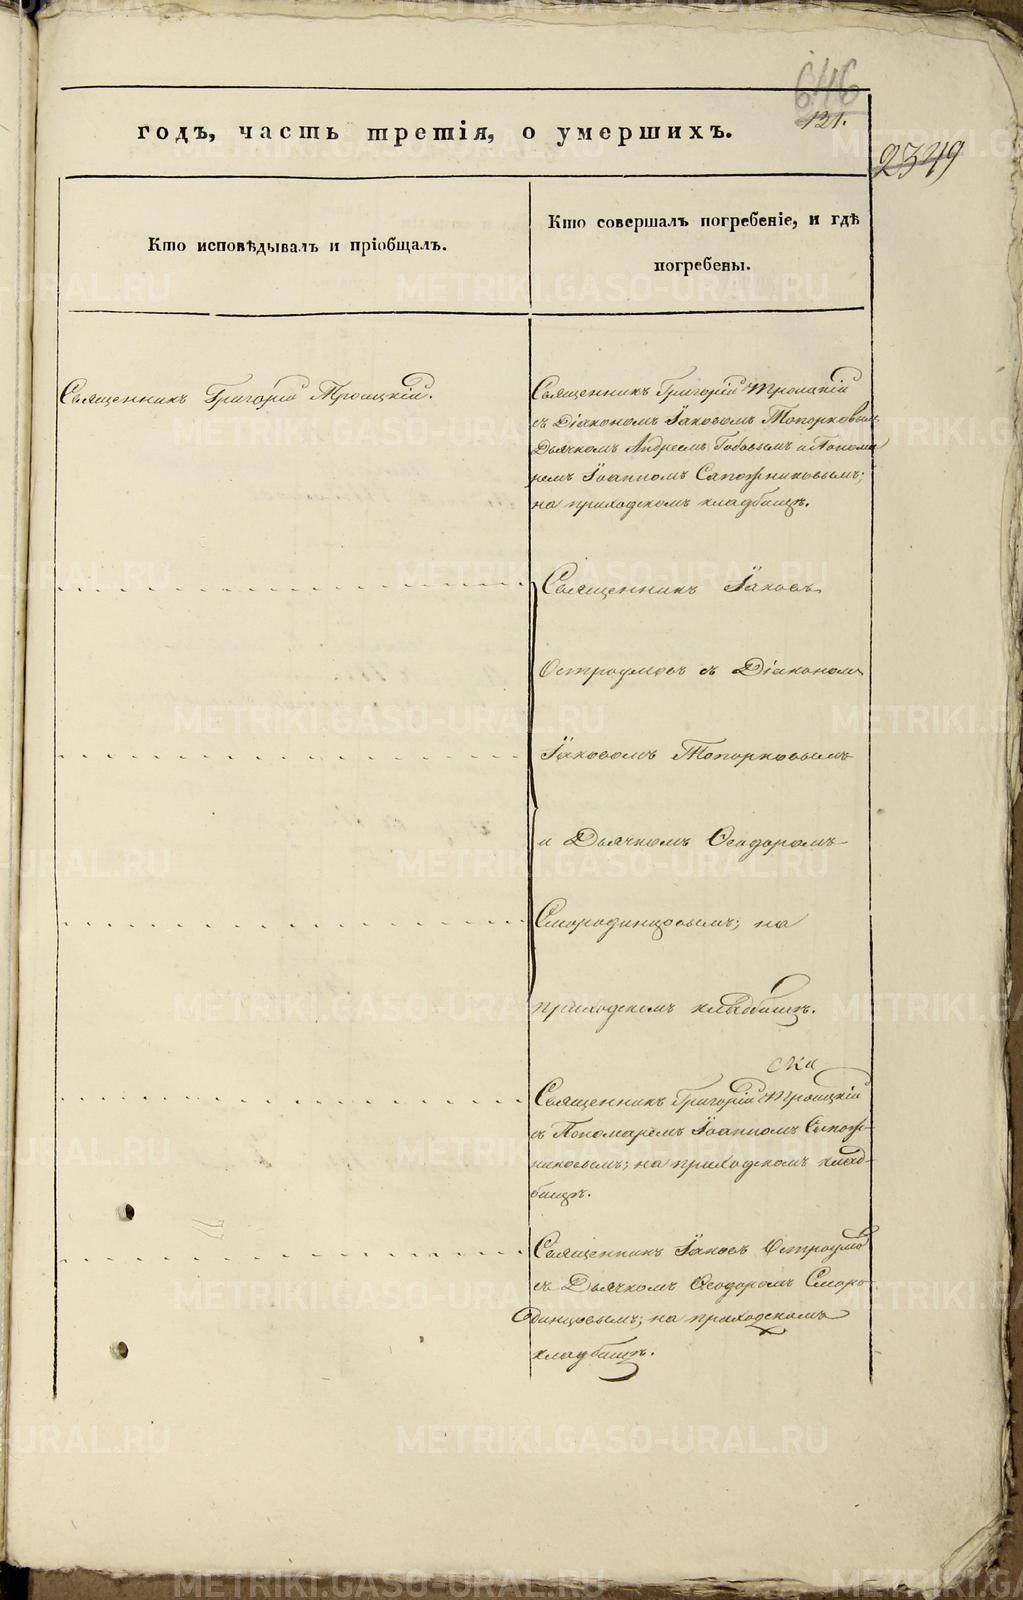 646
121.
годъ, часть третія, о умершихъ.
2349
Кто исповѣдывалъ и пріобщалъ.
Кто совершалъ погребеніе, и гдѣ
погребены.
Священникъ Григорій Троицкій.
Священникъ Григорій Троицкій
съ Діакономъ Іаковомъ Топорковымъ,
Дьячкомъ Андреемъ и Понома
ремъ Іоанномъ Сапожниковымъ;
на приходскомъ кладбищѣ.
Священникъ Іаковъ
Остроумовъ съ Діакономъ
Іаковомъ Топорковымъ
и Дьячкомъ Ѳеодоромъ
Смородинцовымъ; на
приходскомъ кладбищѣ.
Священникъ Григорій Троицкій
съ Пономаремъ Іоанномъ Сапож-
никовымъ; на приходскомъ клад-
бищѣ.
Священникъ Іаковъ Остроумо
съ Дьячкомъ Ѳеодоромъ Сморо
динцовымъ; на приходскомъ
кладбищѣ.
METRIKI.GASO-URAL.RU